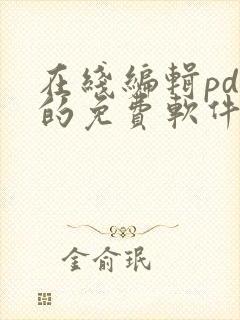 在綫編輯pd
的免費軟件
金俞珉